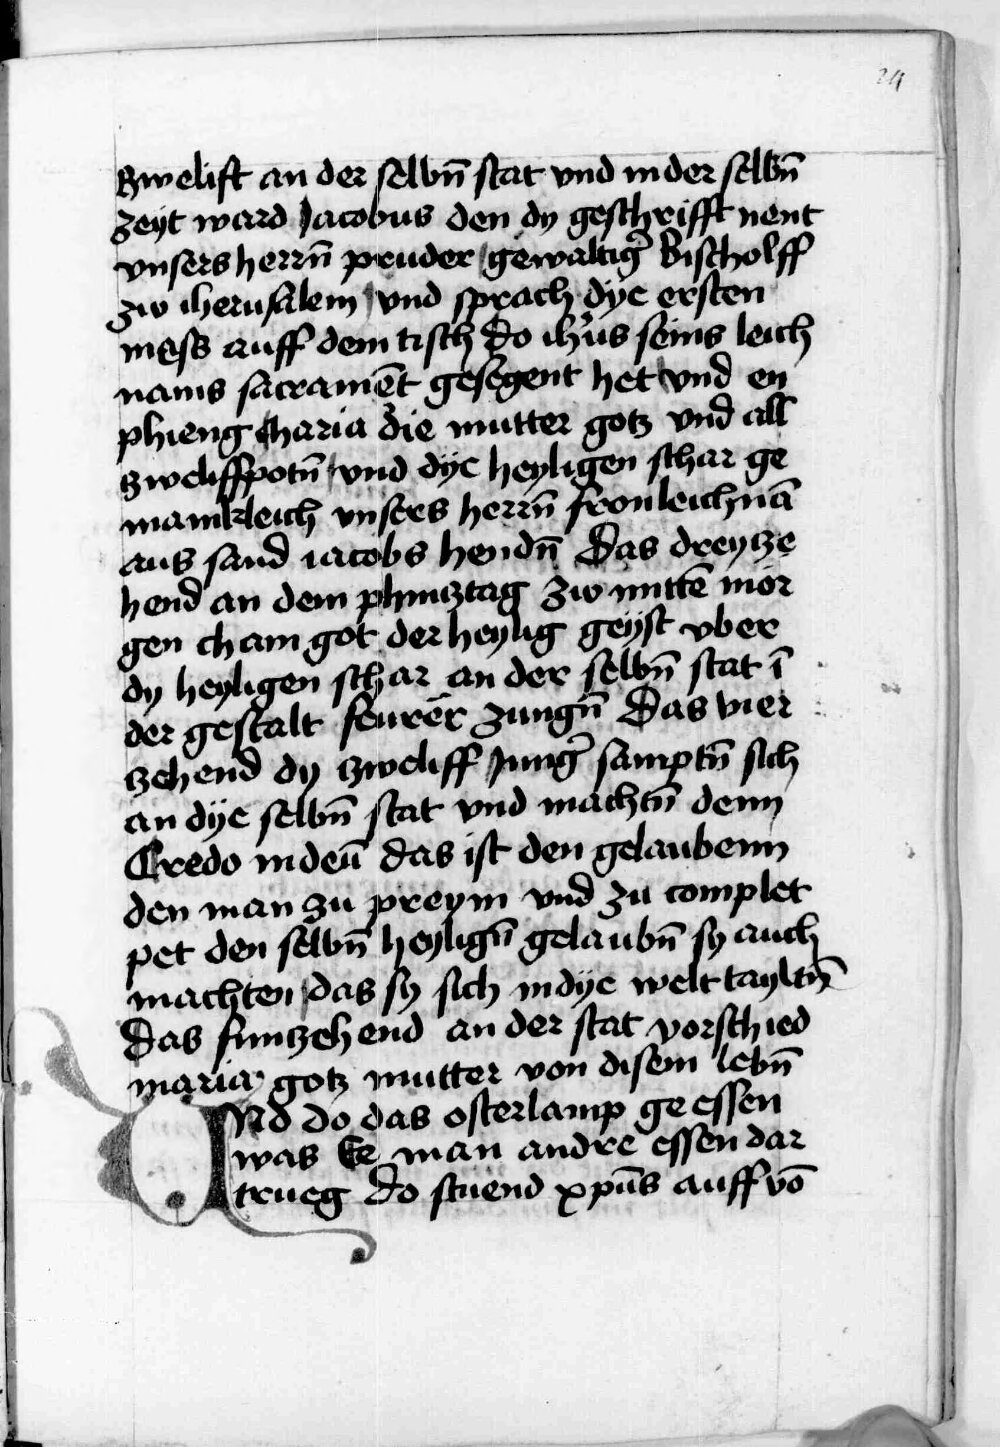 24
Zwelift an der selbn̄ stat vnd in der selbn̄
zeyt ward Jacobus den dy geschrifft nent
vnsers herrn̄ pruder gewaltig̉ Bischolff
zw iherusalem vnd sprach dye ersten
mess auff dem tisch do ihūs seins leich
nams sacramēt gesegent het vnd en
phieng Maria die mutter gotz vnd all
zweliffpotn̄ vnd dye heyligen schar ge
mainkleich vnsers herrn̄ fronleichnā
aus sand iacobs hendn̄ Das dreytze
hend an dem phintztag zw mittē mor
gen cham got der heylig geyst vber
dy heyligen schar an der selbn̄ stat ī
der gestalt feurer zungn̄ Das vier
tzehend dy tzweliff Jung̉ samptn̄ sich
an dye selbn̄ stat vnd machtn̄ denn
Credo in deū das ist den gelaubenn
den man zu preym vnd zu complet
pet den selbn̄ heylign̄ gelaubn̄ sy auch
machten das sy sich in dye welt tayltn̄
Das funtzehend an der stat vorschied
maria gotz mutter von disem lebn̄
VNd do das osterlamp geessen
was Ee man andre essen dar
trueg do stuend xpūs auff vō